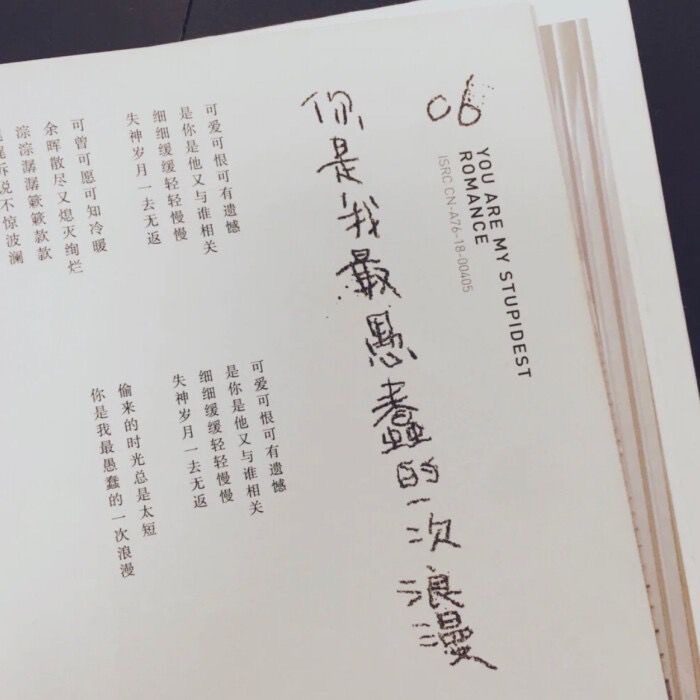 06
YOU ARE MY STUPIDEST
ROMANCE
ISRC CN-A76-18-00405
你是我最愚蠢的一次浪漫
可爱可恨可有遗憾
是你是他又与谁相关
细细缓缓轻轻慢慢
失神岁月一去无返
可曾可愿可知冷暖
余晖散尽又熄灭绚烂
淙淙潺潺簌簌款款
诉说不惊波澜
可爱可恨可有遗憾
是你是他又与谁相关
细细缓缓轻轻慢慢
失神岁月一去无返
偷来的时光总是太短
你是我最愚蠢的一次浪漫